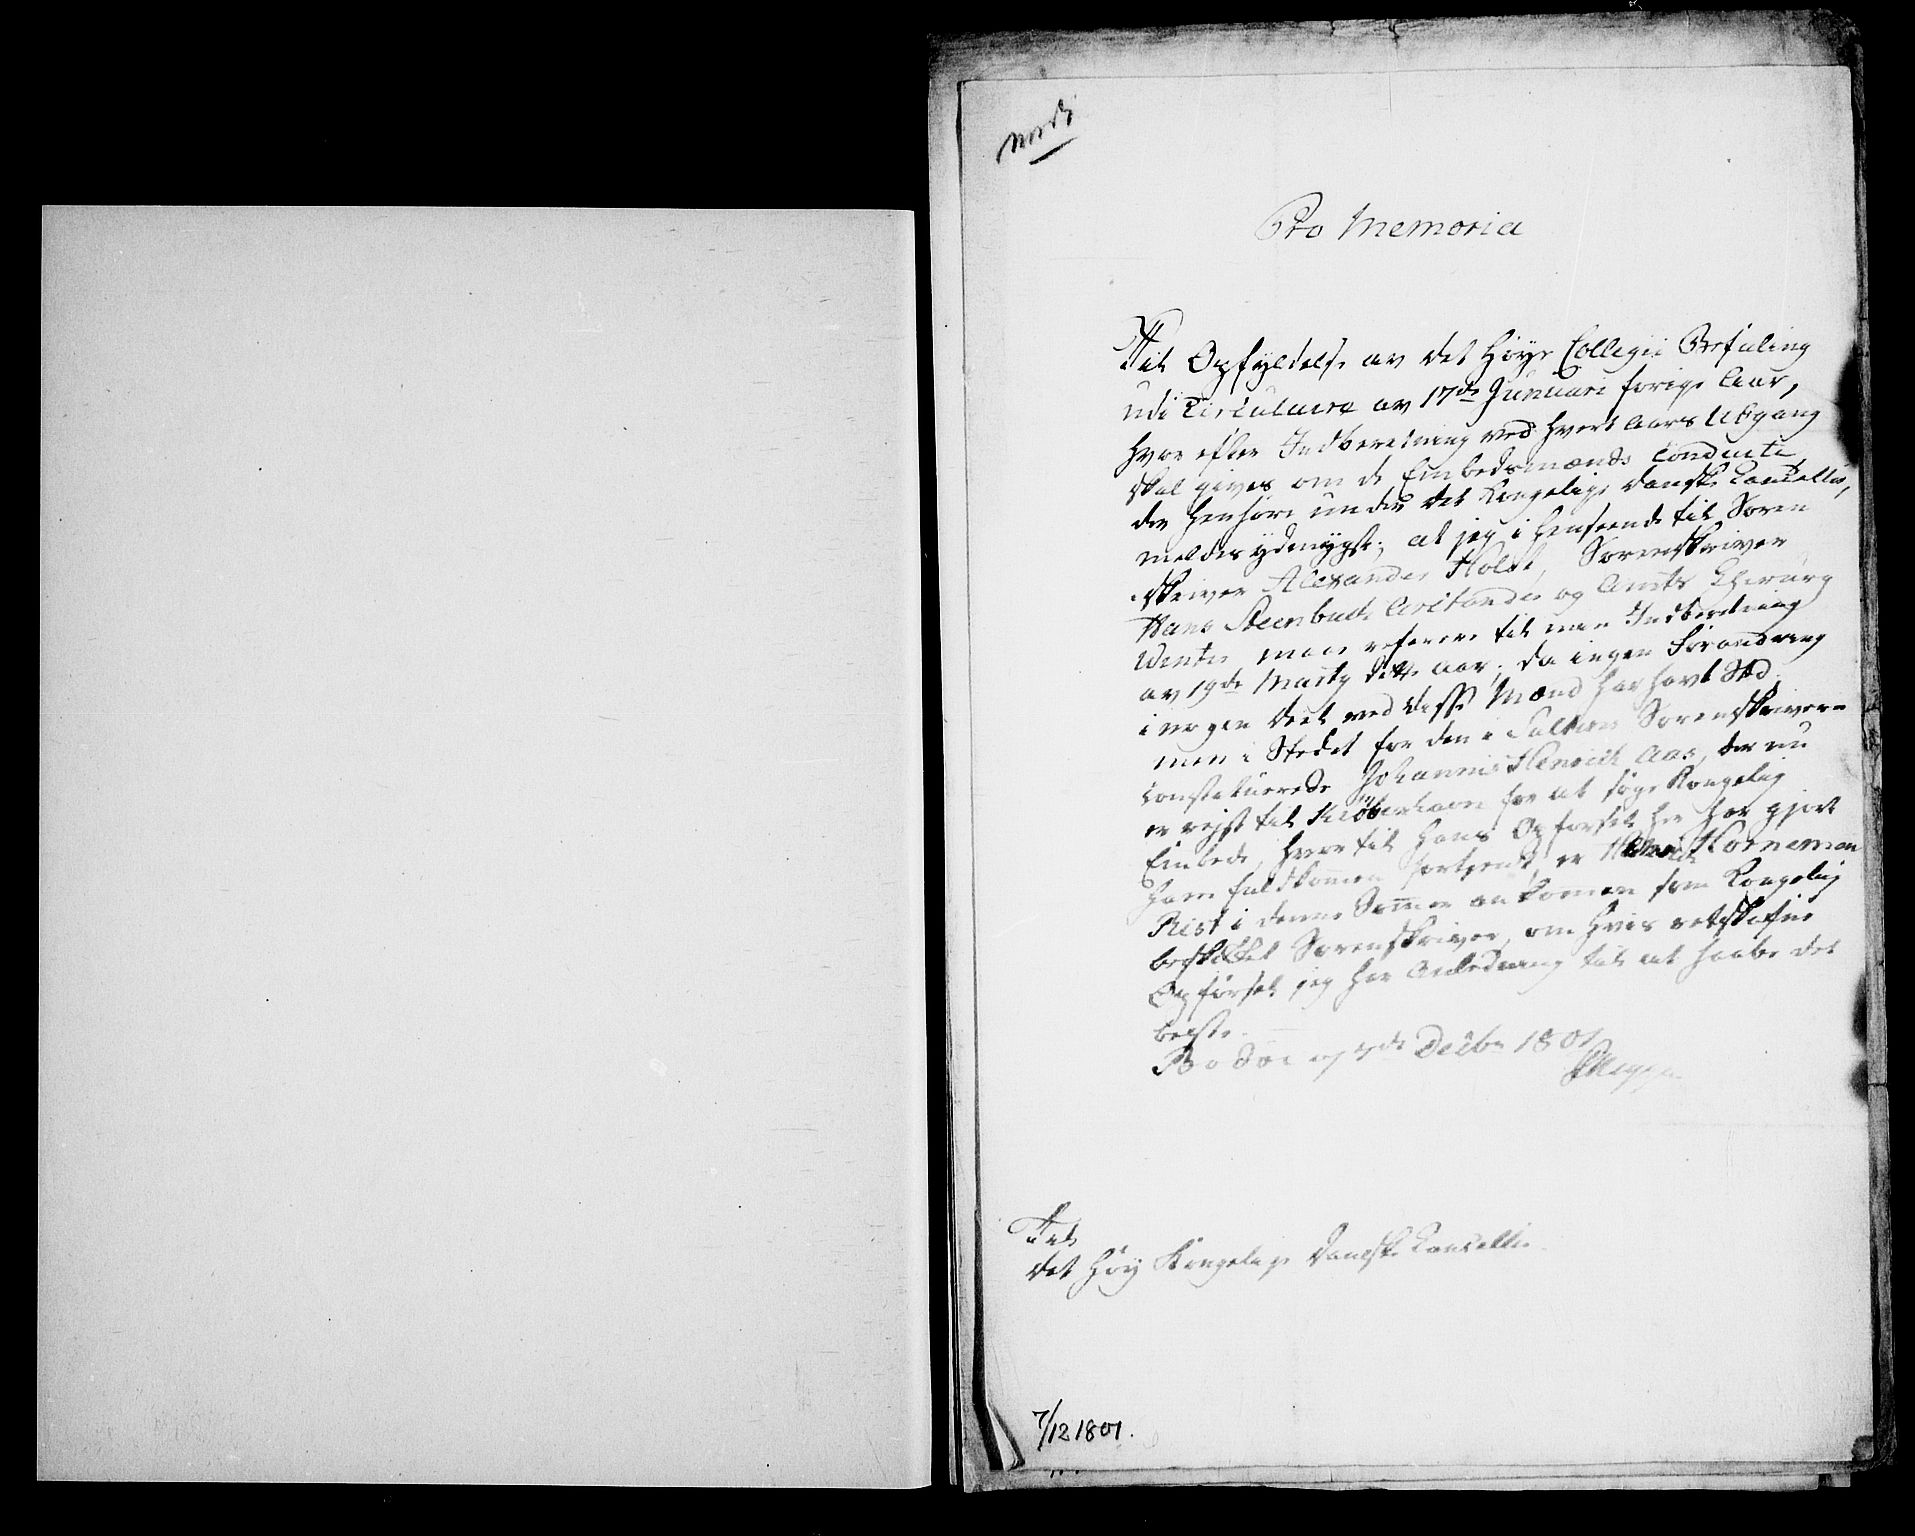 Pro Memoria
Til Opfyldelse av det høye Collegii Befaling
udi Circulaire av 17de Januari forige Aar,
hvor efter Indberetning ved hvert Aars Udgang
skal gives om de Embedsmænds Conduite
der henhøre under det Kongelige Danske Cancellie,
meldes ydmygst; at jeg i henseende til Soren
skriver Alexander Holst, Sorenskriver
Hans Steenbuch Aristander og Amts Chirurg
Winter maae referere til min Indberetning
av 19de Marty dette Aar; da ingen Forandring
i nogen Deel med disse Mænd har havt Sted
men i Stedet for den i Salten Sorenskriverie
constituerede Johannes Henrich Aas, der nu
er rejst til Kiøbenhavn for at søge Kongelig
Embede, hvor til hans Opførsel her har gjort
ham fuldkommen fortient, er Henrich Hornemann
Rist i denne Sommer ankommen som Kongelig
beskikket Sorenskriver, om hvis retskafne
Opførsel jeg har Anledning til at haabe det
beste.
Bodøe 7de Decbr 1801
Til
det høy Kongelige Danske Cancellie
7/12 1801.